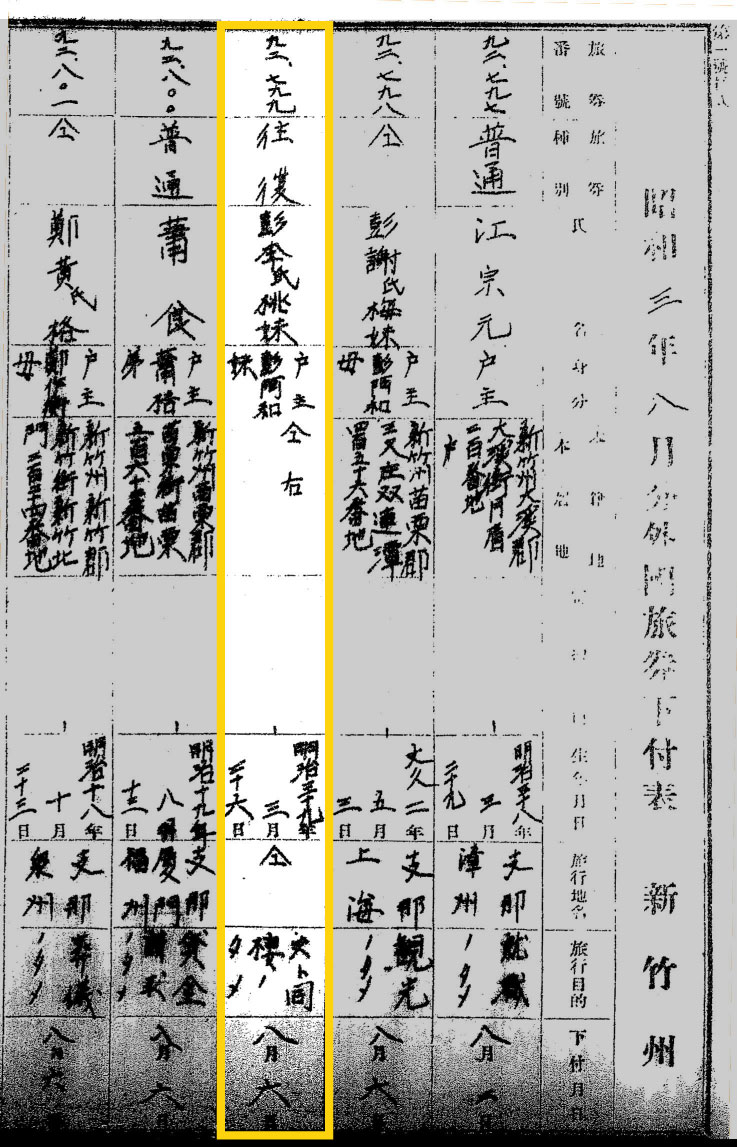 昭和三年八月分外國旅券下付表
新竹州
旅券番號
旅券種別
氏名
身分
本籍地
生年月日
旅行地名
旅行目的
下付月日
九二、七九七
普通
江宗元
戶主
新竹州大溪郡
大溪街
二百番地
明治三十八年
三月
二十九日
支那
漳州
就職
ノタメ
八月
九二、七九八
仝
彭謝氏梅妹
戶主
彭阿和
母
新竹州苗栗郡
三叉庄双連潭
四百五十六番地
文久二年
五月
三日
支那
上海
觀光
ノタメ
八月六日
九二、七九九
往復
彭李氏桃妹
戶主
彭阿和
妹
仝右
明治三十九年
三月
二十六日
仝
夫ト同
棲ノ
タメ
八月六日
九二、八〇〇
普通
蕭
戶主
蕭格
弟
新竹州苗栗郡
苗栗街苗栗
明治十九年
八月
十三日
支那
廈門
福州
貸金
請求
ノタメ
八月六日
九二、八〇一
仝
鄭黃氏格
戶主
母
新竹州新竹郡
新竹街新竹北
門二百十四番地
明治十八年
十月
二十三日
支那
泉州
葬儀
ノタメ
八月六日